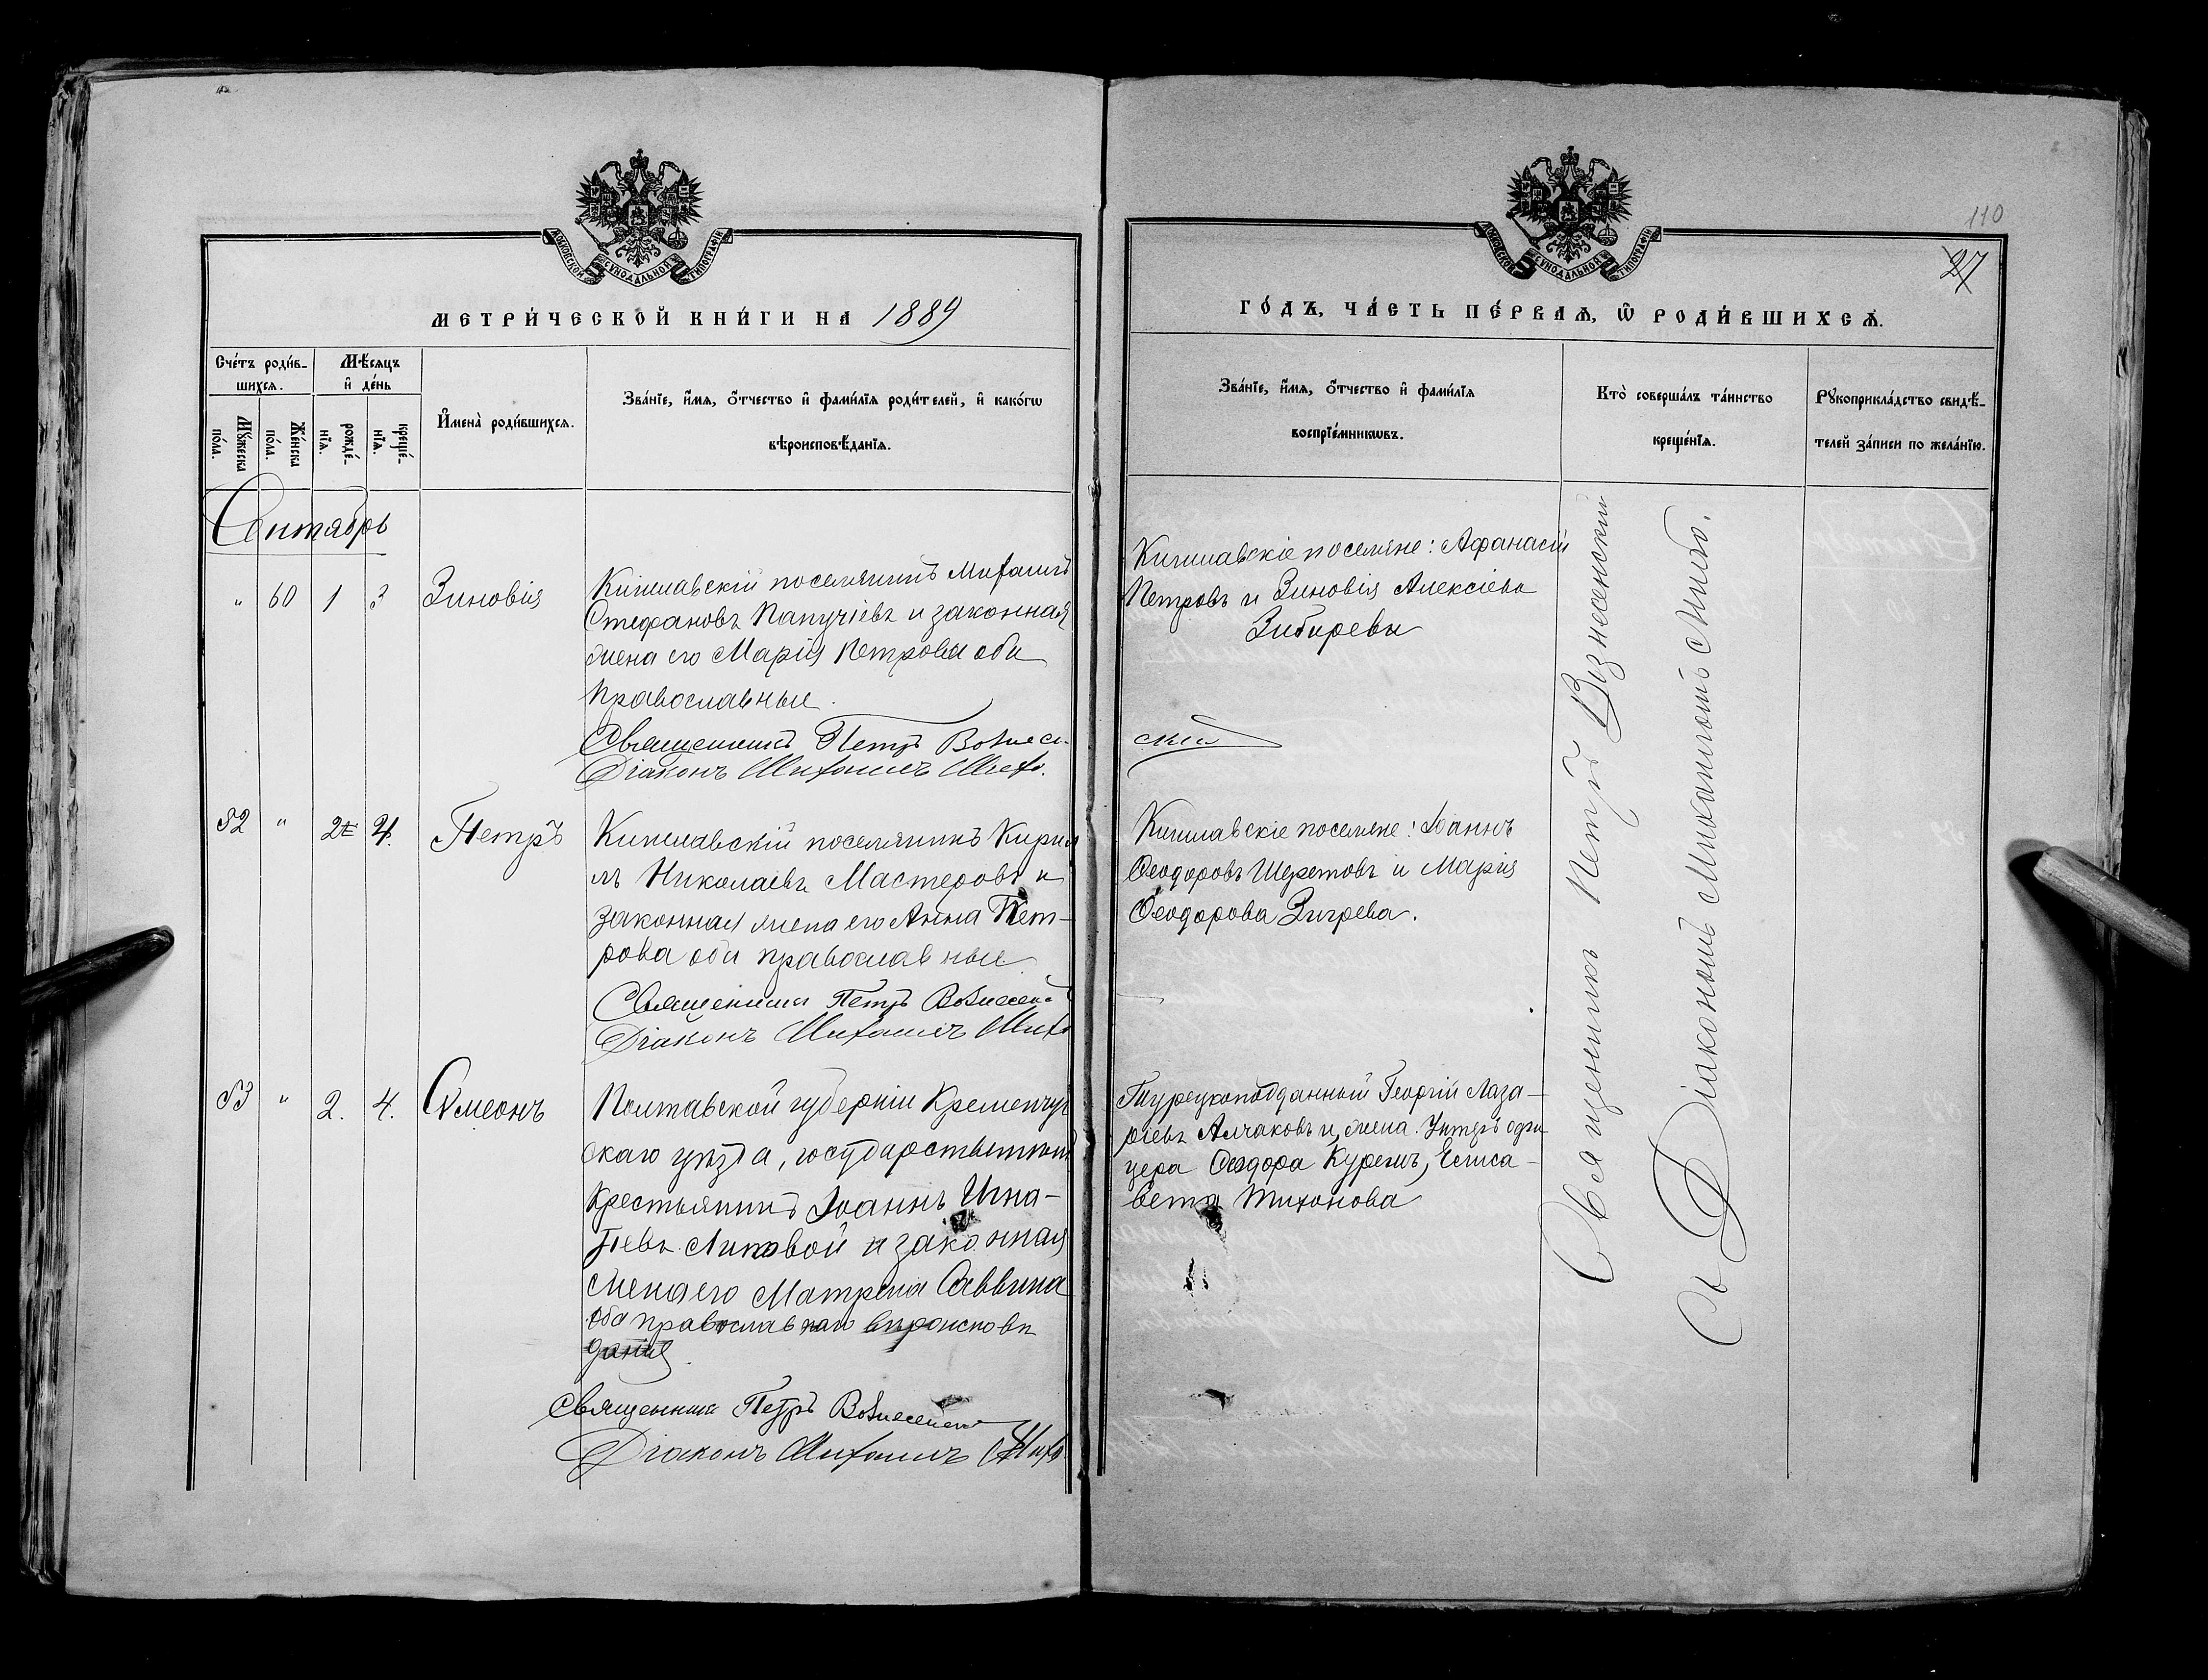 МОСКОВСКОЙ СѴНОДАЛЬНОЙ ТИПОГРАФІИ
МЕТРИ́ЧЕСКОЙ КНИ́ГИ НА 1889
Сче́тъ роди́в-
шихся.
Мѣ́сяцъ
и҆ де́нь
Мꙋ́жеска
по́ла.
Же́нска
по́ла.
рожде́-
нїѧ.
креще́-
нїѧ.
И҆мена̀ роди́вшихсѧ.
Зва́нїе, и҆́мѧ, ѻ҆́тчество и҆ фами́лїѧ роди́телей, и҆ како́гѡ
вѣроисповѣ́данїѧ.
Сентябрь
" 60 1 3 Зиновія
Кишлавскій поселянинъ Михаилъ
Стефановъ Папучіевъ и законная
жена его Марія Петрова оба
православные.
Священникъ Петръ Вознесен-
Діаконъ Михаилъ Михо.
82 " 2 4. Петръ
Кишлавскій поселянинъ Кирил
лъ Николаевъ Мастеровъ и
законная жена его Анна Пет-
рова оба православные.
Священникъ Петръ Вознесен
Діаконъ Михаилъ Михо
83 " 2. 4. Сѵмеонъ
Полтавской губерніи Кременчуг
скаго уѣзда, государственный
крестьянинъ Іоаннъ Игна-
тіевъ Липовой и законная
жена его Матрона Саввина
оба православнаго вѣроисповѣ
данія.
Священникъ Петръ Вознесенск
Діаконъ Михаилъ Михо
МОСКОВСКОЙ СѴНОДАЛЬНОЙ ТИПОГРАФІИ
110
27
ГО́ДЪ, ЧА́СТЬ ПЕ́РВАѦ, Ѽ РОДИ́ВШИХСѦ.
Зва́нїе, и҆́мѧ, ѻ҆́тчество и҆ фами́лїѧ
воспрїе́мникѡвъ.
Кто̀ соверша́лъ та́инство
креще́нїѧ.
Рꙋкоприкла́дство свидѣ́-
телей за́писи по жела́нїю.
Кишлавскіе поселяне: Афанасій
Петровъ и Зиновія Алексіева
Зибиревы
скій
Кишлавскіе поселяне: Іоаннъ
Ѳеодоровъ Шеретовъ и Марія
Ѳеодорова Зигрева.
Турецкоподданный Георгій Лаза-
ріевъ Алчаковъ и, жена. Унтеръ офи
цера Ѳеодора Курешъ, Елиса-
вета Тихонова
Священникъ Петръ Вознесенскій
съ Діакономъ Михаиломъ Михо.